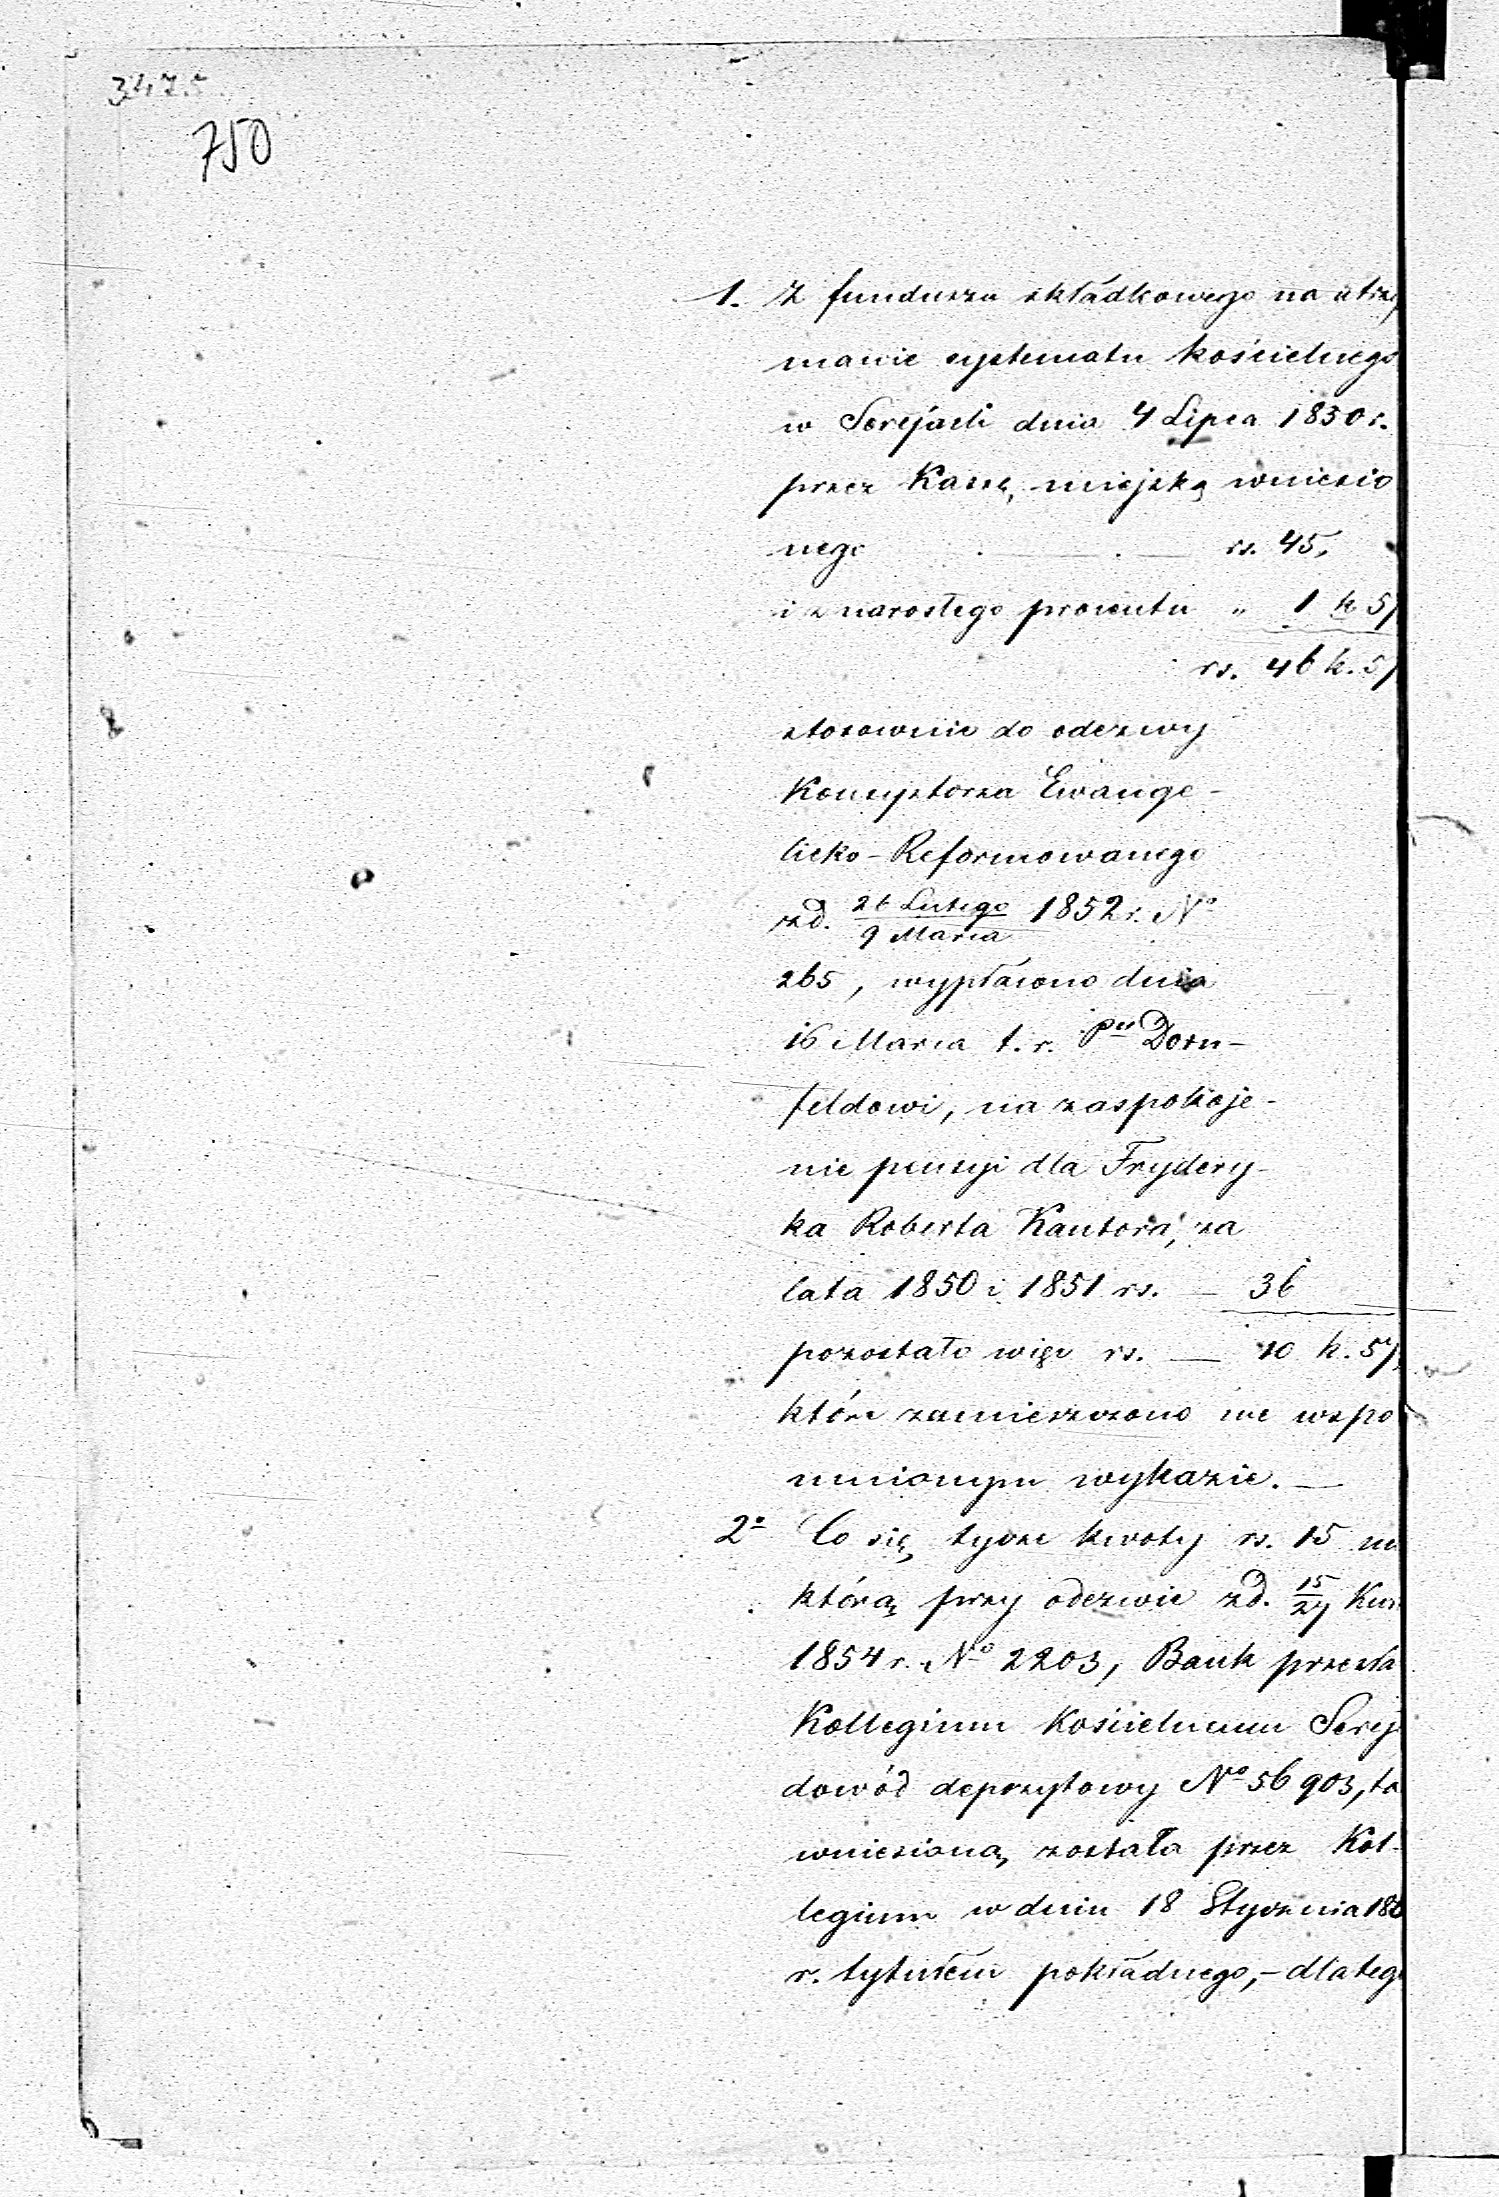 3475
750
1. Z funduszu składkowego na utrzy
manie systematu kościelnego
w Serejach dnia 4 Lipca 1850 r.
przez Kassę miejską wniesio
nego rs. 45.
i z narosłego procentu " 1 k 57
rs. 46 k. 57
stosownie do odezwy
Konsystorza Ewange-
licko-Reformowanego
z d. 26 Lutego / 9 Marca 1852 r. No
265, wypłacono dnia
16 Marca t. r. Pu Dorn-
feldowi, na zaspokoje-
nie pensyi dla Frydery-
ka Roberta Kantora, za
lata 1850 i 1851 rs. — 36
pozostało więc rs. — 10 k. 57
które zamieszczono we wspo
mnionym wykazie. —
2o Co się tycze kwoty rs. 15 na
którą przy odezwie z d. 15/27 Kwi
1854 r. No 2203, Bank przesła
Kollegium Kościelnemu Serej
dowód depozytowy No 56903, ta
wniesioną została przez Kol-
legium w dniu 18 Stycznia 18
r. tytułem pokładnego, – dlateg